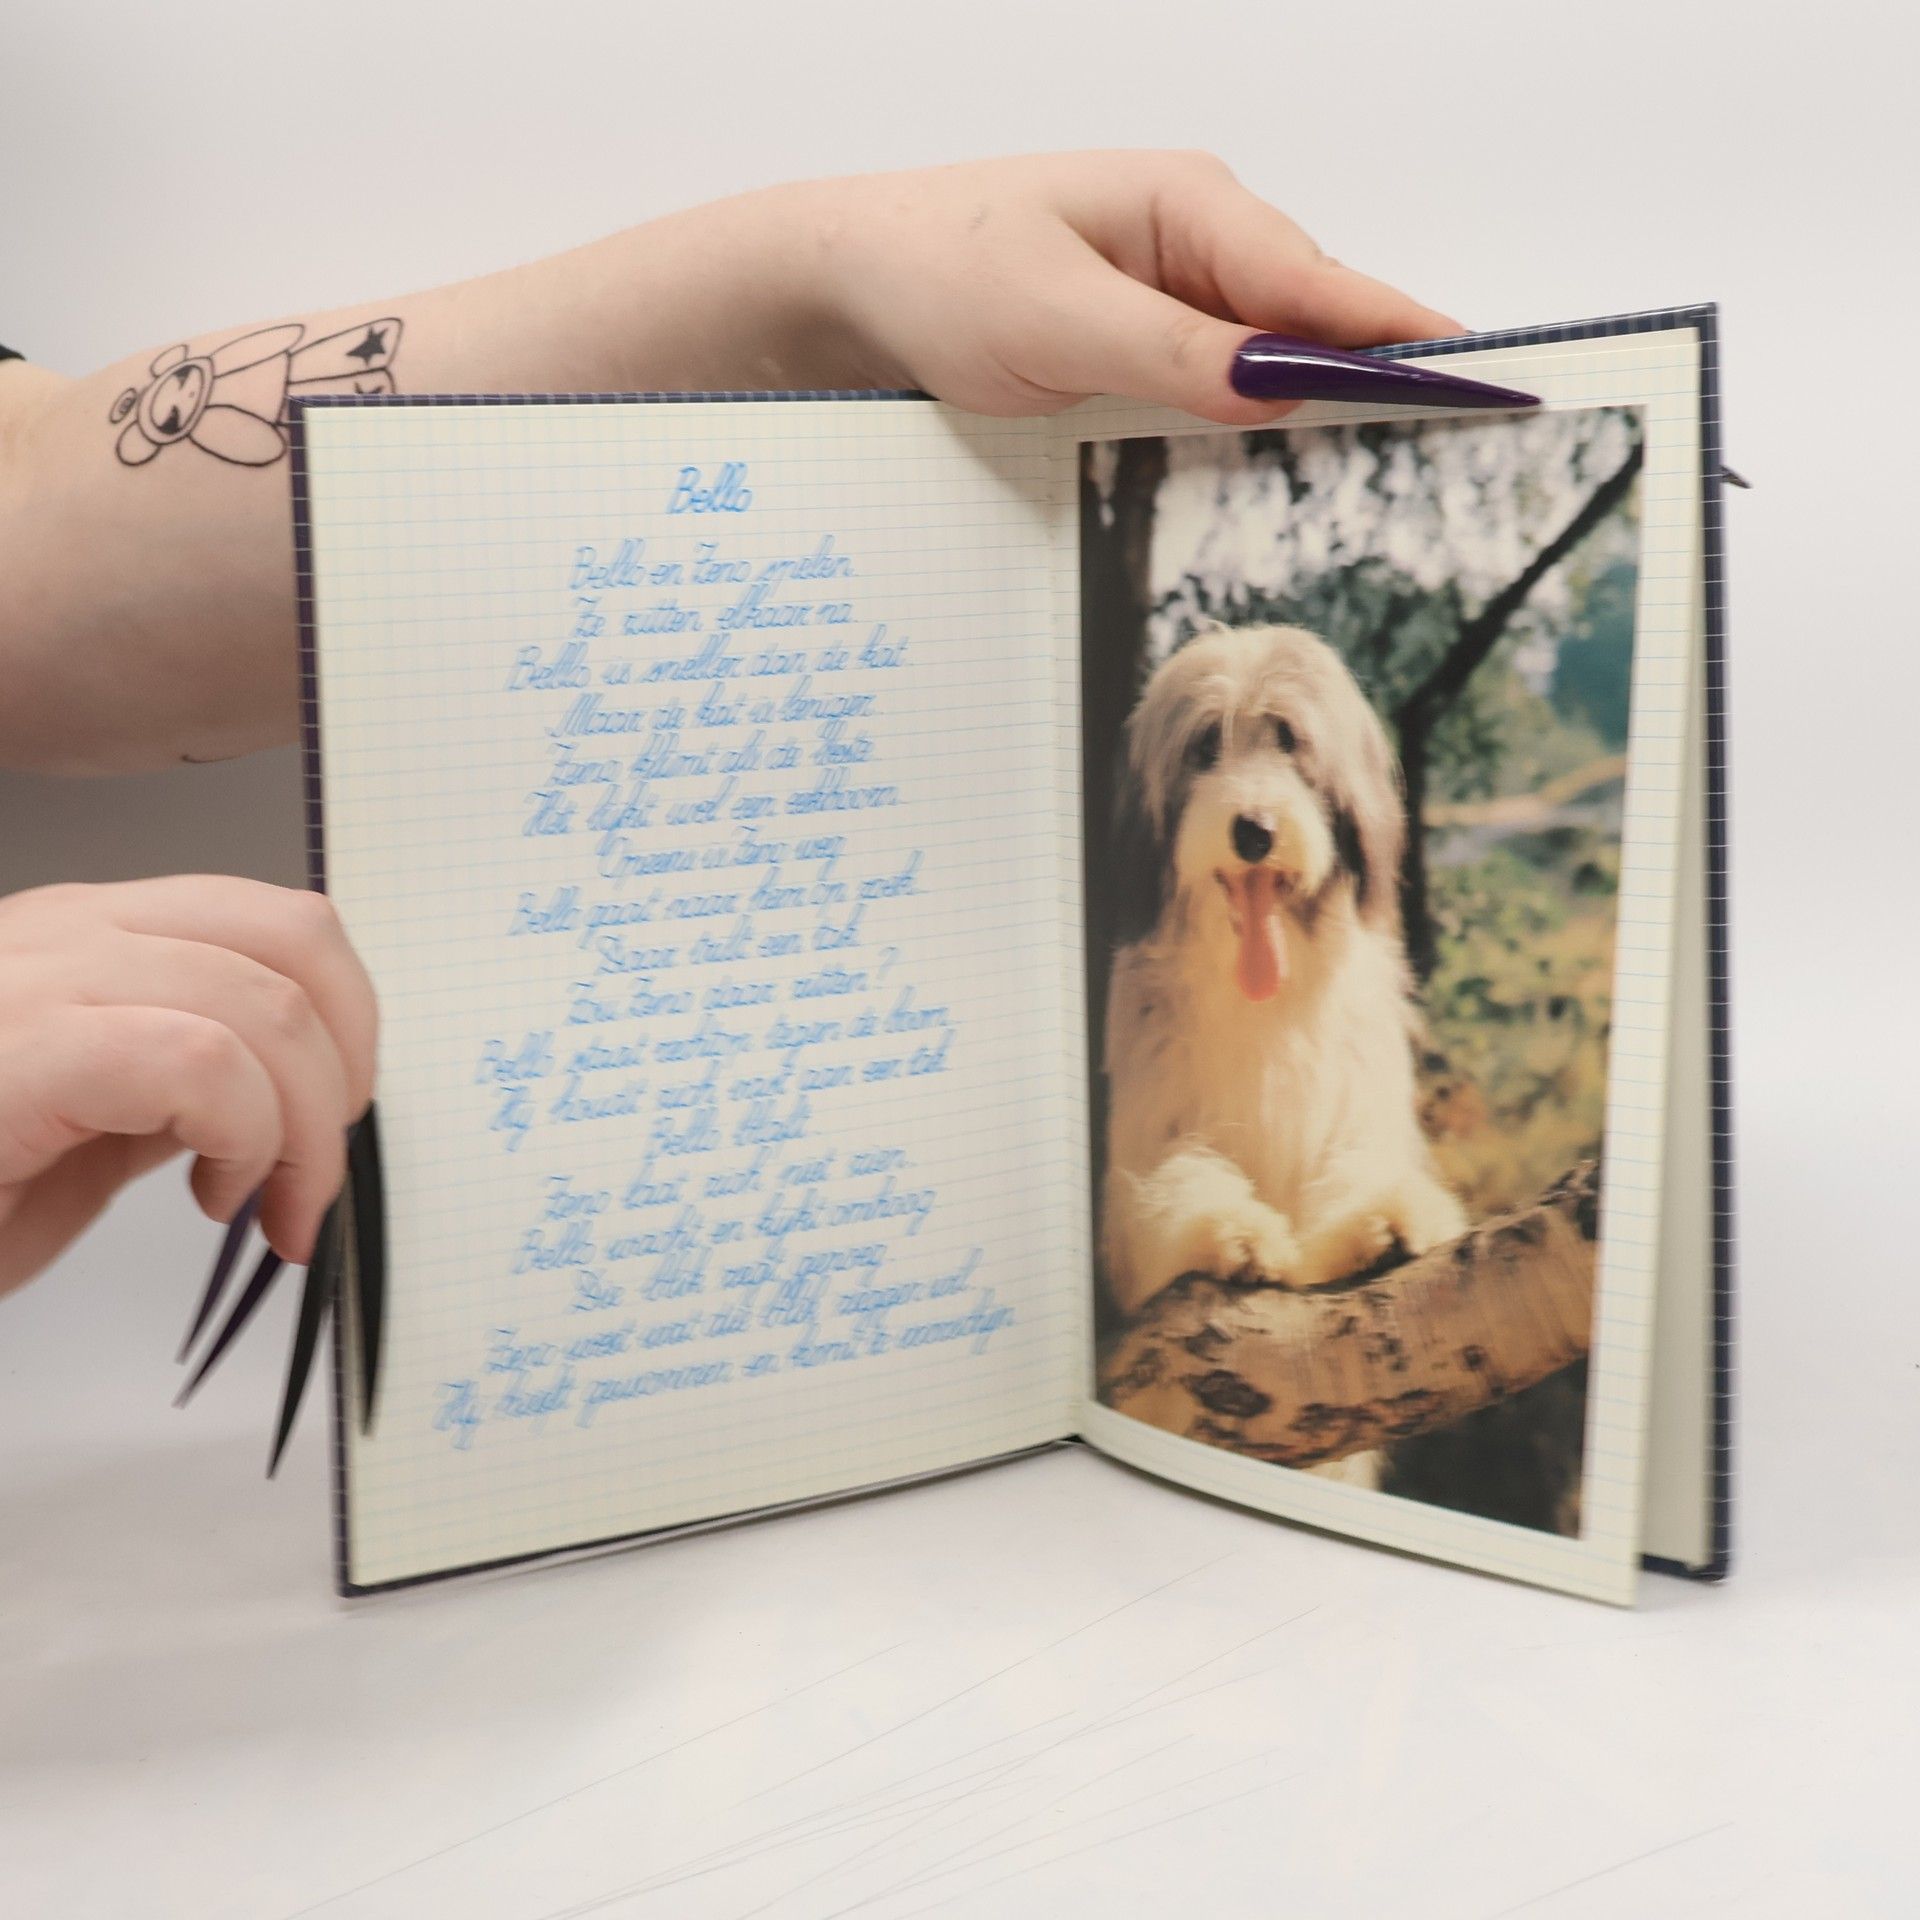 Bello
Bello en Zeno spelen.
Ze zitten elkaar na.
Bello is sneller dan de kat.
Maar de kat is leniger.
Zeno klimt als de beste
Het lijkt wel een eekhoorn.
Opeens is Zeno weg
Bello gaat naar hem op zoek.
Daar trilt een tak
Zou Zeno daar zitten?
Bello staat rechtop tegen de boom.
Hij houdt zich vast aan een tak
Bello blaft
Zeno laat zich niet zien.
Bello wacht en kijkt omhoog
Die blik zegt genoeg
Zeno weet wat die blik zeggen wil.
Hij heeft gewonnen en komt te voorschijn